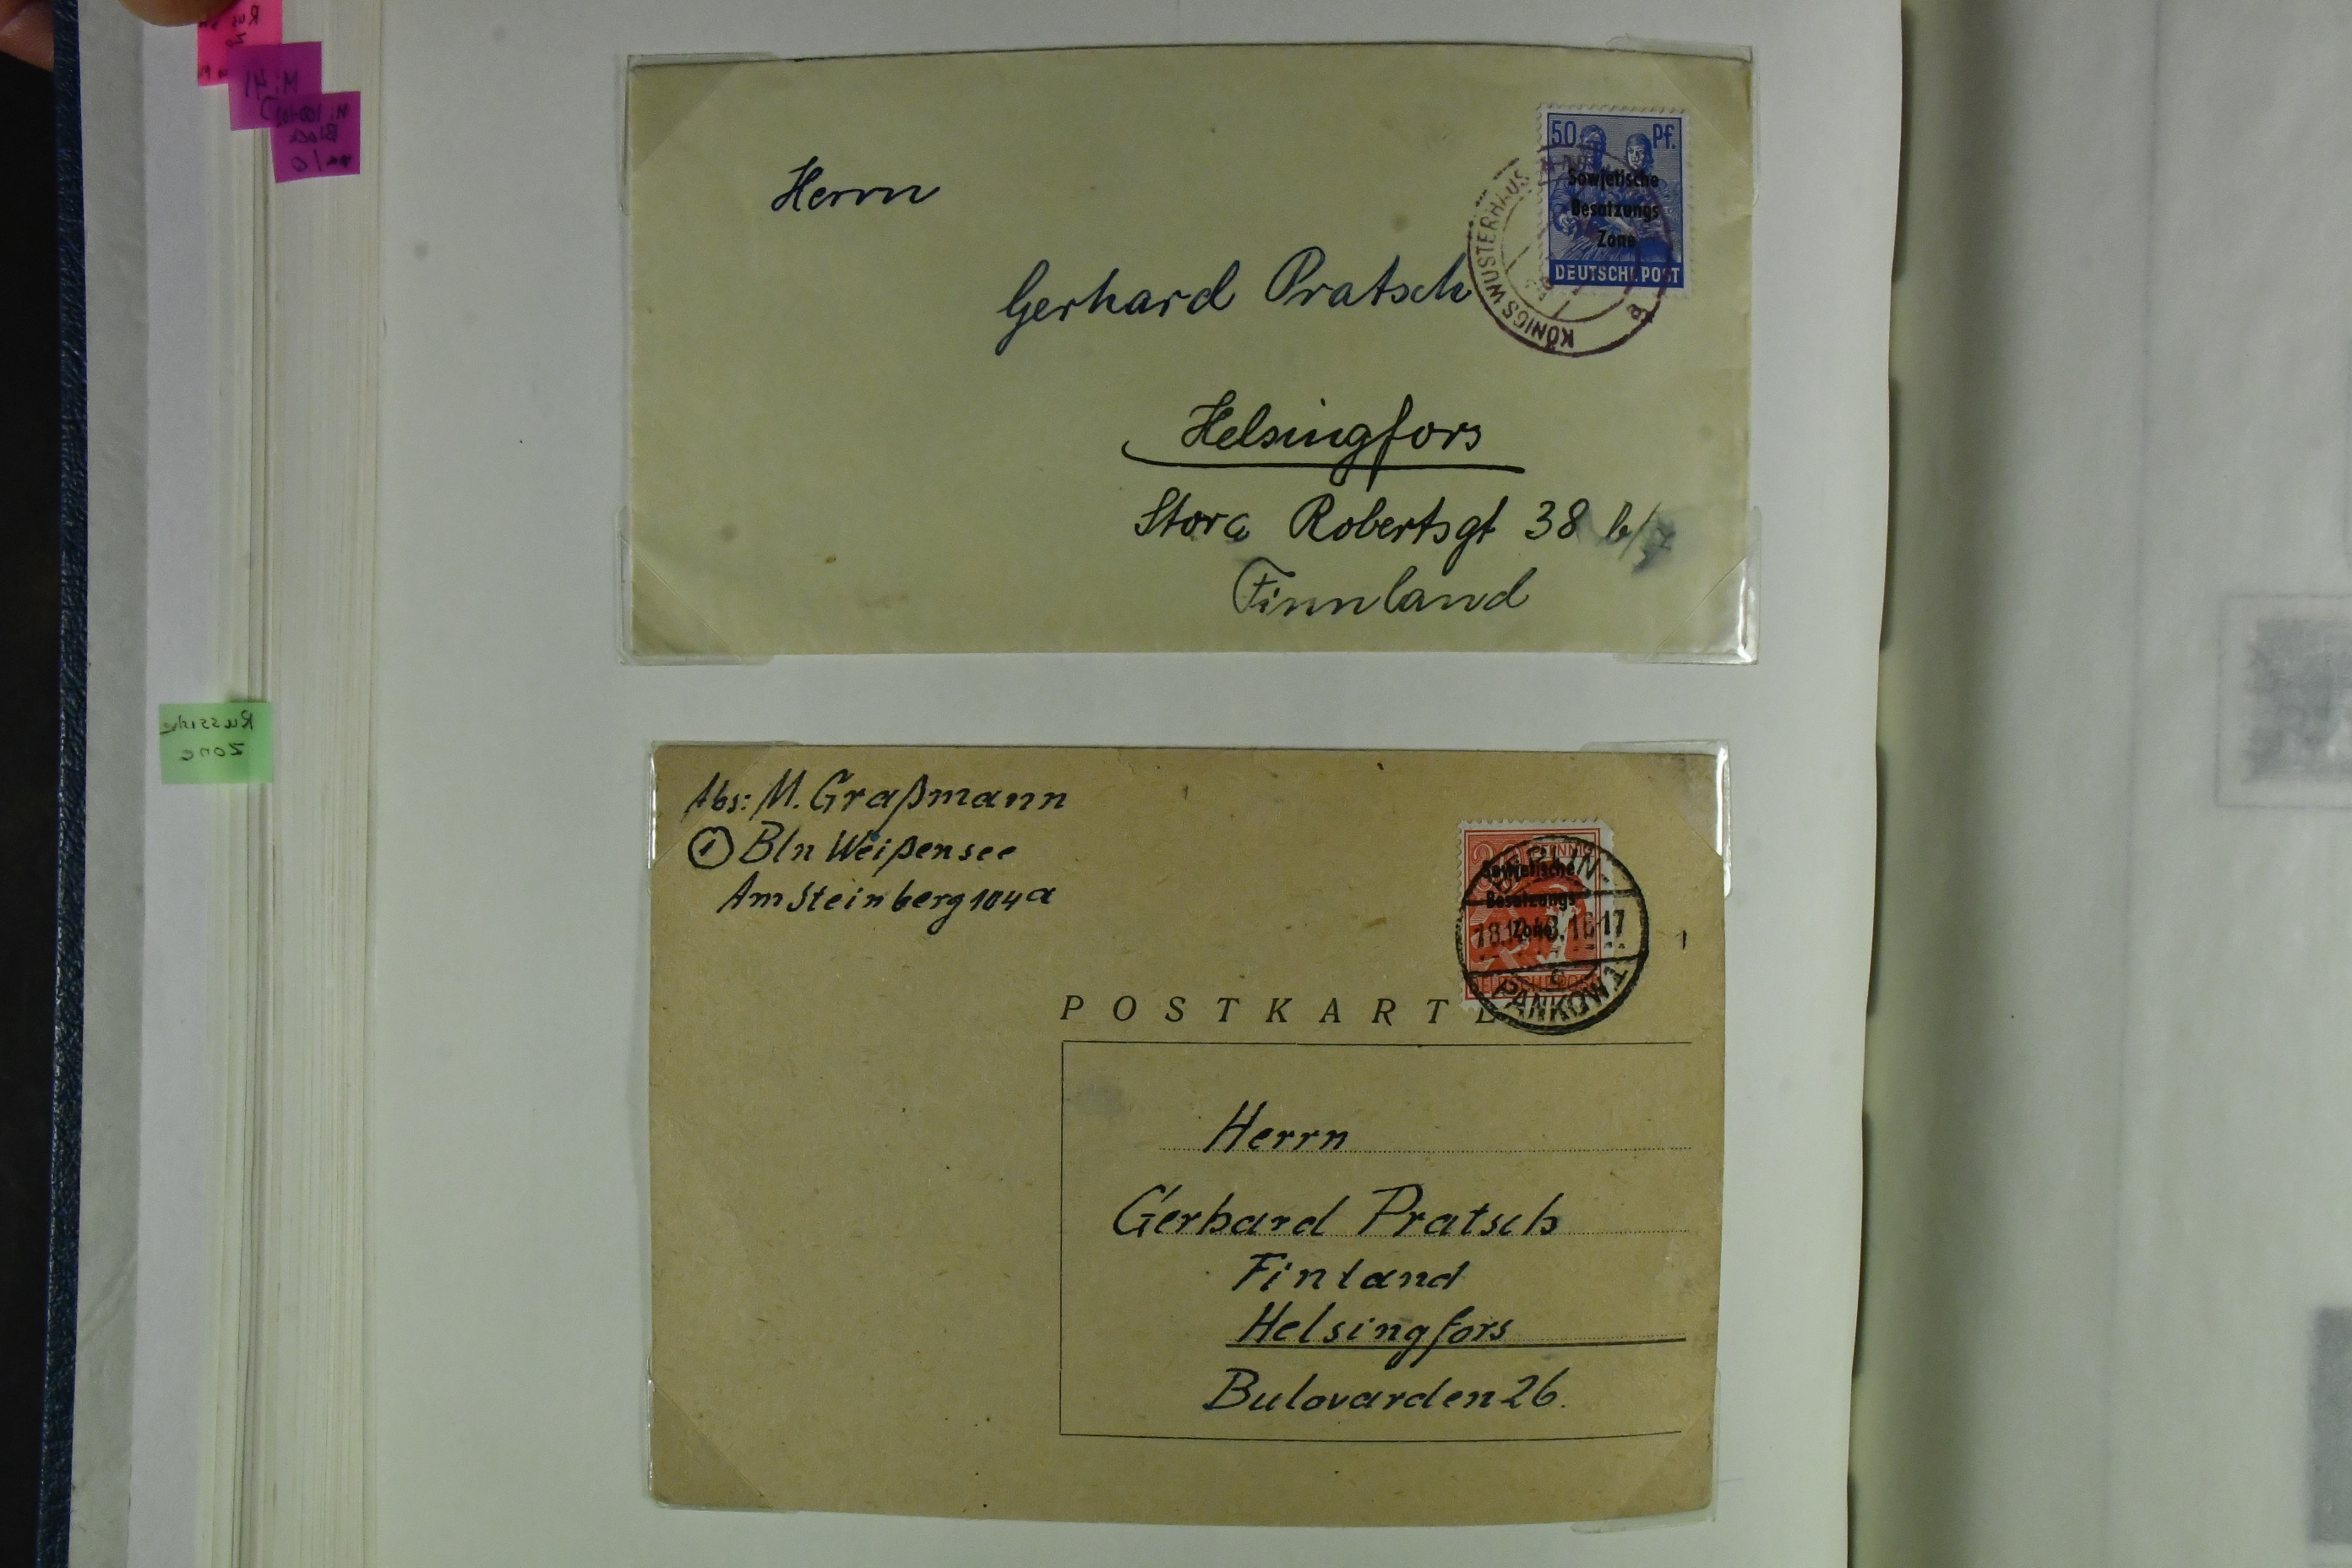 Mi 41
Block
Russische
Zone
50 Pf.
Sowjetische
Besatzungs
Zone
DEUTSCHE POST
KÖNIGS WUSTERHAUS
a
Herrn
Gerhard Pratsch
Helsingfors
Stora Robertsgt 38 b/7
Finnland
Abs: M. Graßmann
1 Bln Weißensee
Am Steinberg 104a
PFENNIG
Sowjetische
Besatzungs
Zone
BERLIN-
16-17
c
PANKOW 1
POSTKARTE
Herrn
Gerhard Pratsch
Finland
Helsingfors
Bulovarden 26.